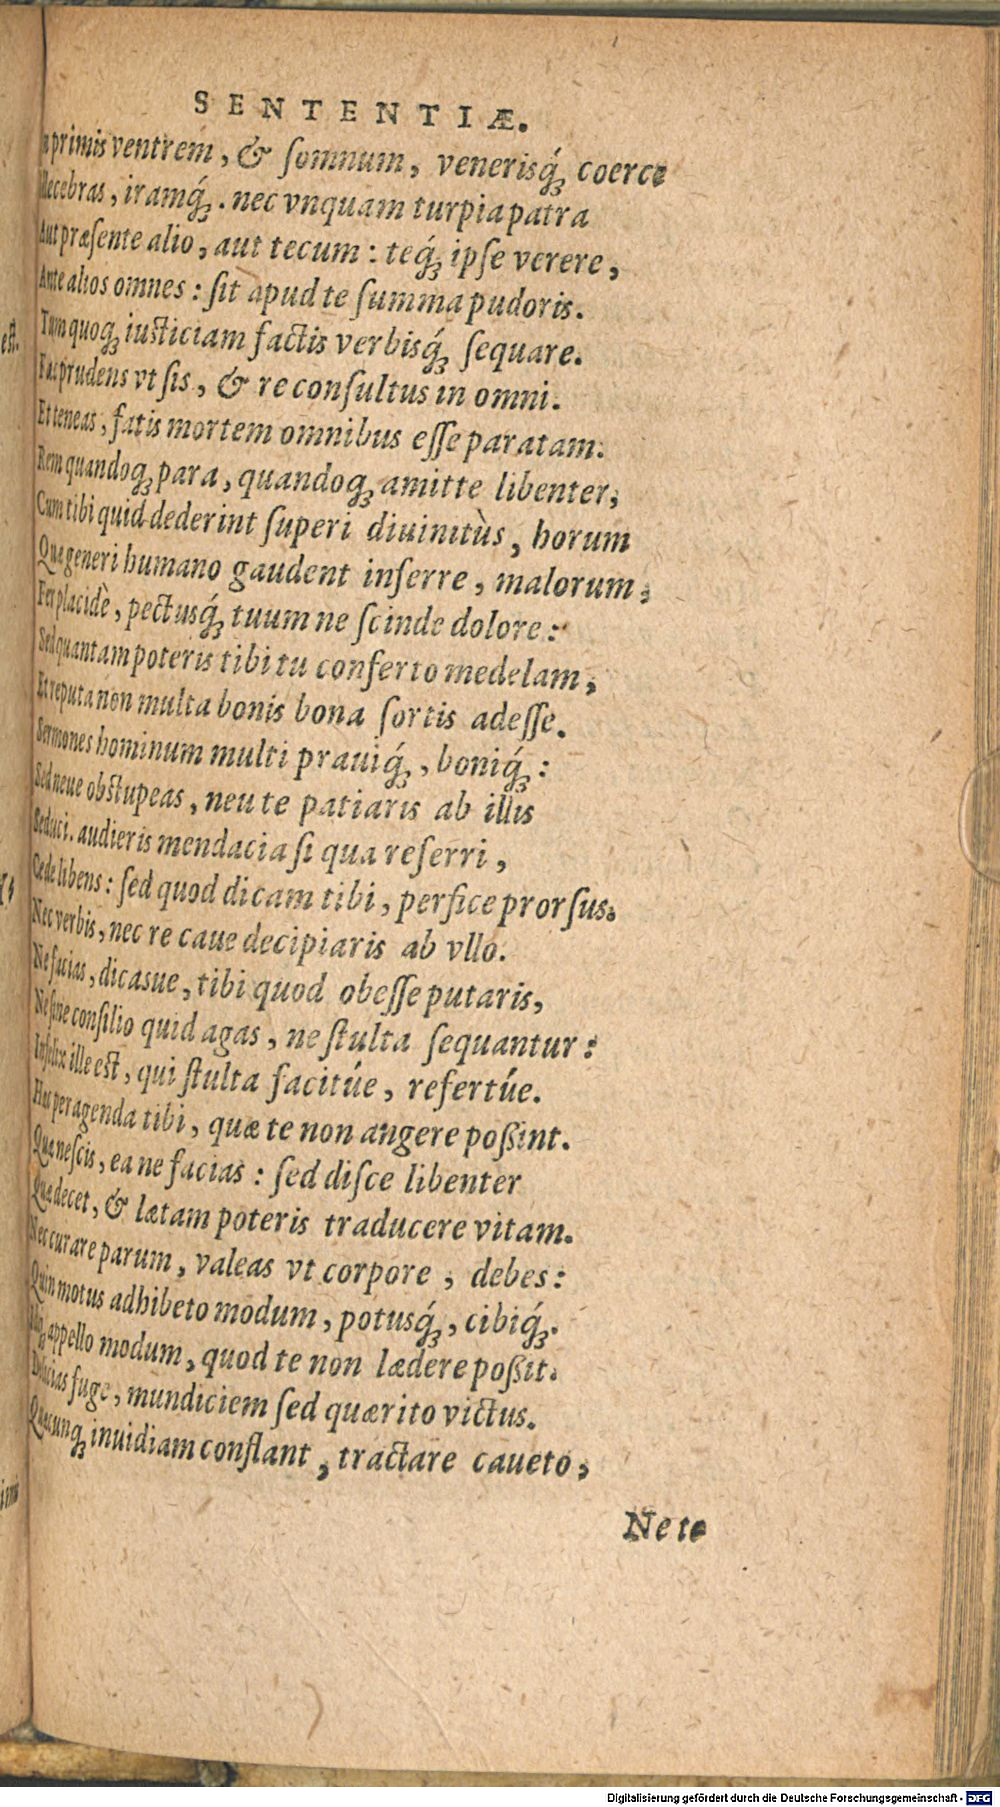 SENTENTIÆ.
In primis ventrem, & ſomnum, venerisq́; coerce
Illecebras, iramq́;. nec vnquam turpia patra
Aut præſente alio, aut tecum: teq́; ipſe verere,
Ante alios omnes: ſit apud te ſumma pudoris.
Tum quoq; iuſticiam factis verbisq́; ſequare.
Fac prudens vt ſis, & re conſultus in omni.
Et teneas, fatis mortem omnibus eſſe paratam.
Rem quandoq; para, quandoq; amitte libenter;
Cum tibi quid dederint ſuperi diuinitùs, horum
Quæ generi humano gaudent inferre, malorum;
Fer placidè, pectusq́; tuum ne ſcinde dolore:
Sed quantam poteris tibi tu conferto medelam,
Et reputa non multa bonis bona ſortis adeſſe.
Sermones hominum multi prauiq́;, boniq́;:
Sed neue obſtupeas, neu te patiaris ab illis
Seduci. audieris mendacia ſi qua referri,
Cede libens: ſed quod dicam tibi, perfice prorſus.
Nec verbis, nec re caue decipiaris ab vllo.
Ne facias, dicasue, tibi quod obeſſe putaris,
Ne ſine conſilio quid agas, ne ſtulta ſequantur:
Infelix ille eſt, qui ſtulta facitúe, refertúe.
Hæc peragenda tibi, quæ te non angere poßint.
Quæ neſcis, ea ne facias: ſed diſce libenter
Quæ decet, & lætam poteris traducere vitam.
Nec curare parum, valeas vt corpore, debes:
Quin motus adhibeto modum, potusq́;, cibiq́;.
appello modum, quod te non lædere poßit.
Delicias fuge, mundiciem ſed quærito victus.
Quæcunq; inuidiam conflant, tractare caueto,
Ne te
est.
Digitalisierung gefördert durch die Deutsche Forschungsgemeinschaft - DFG